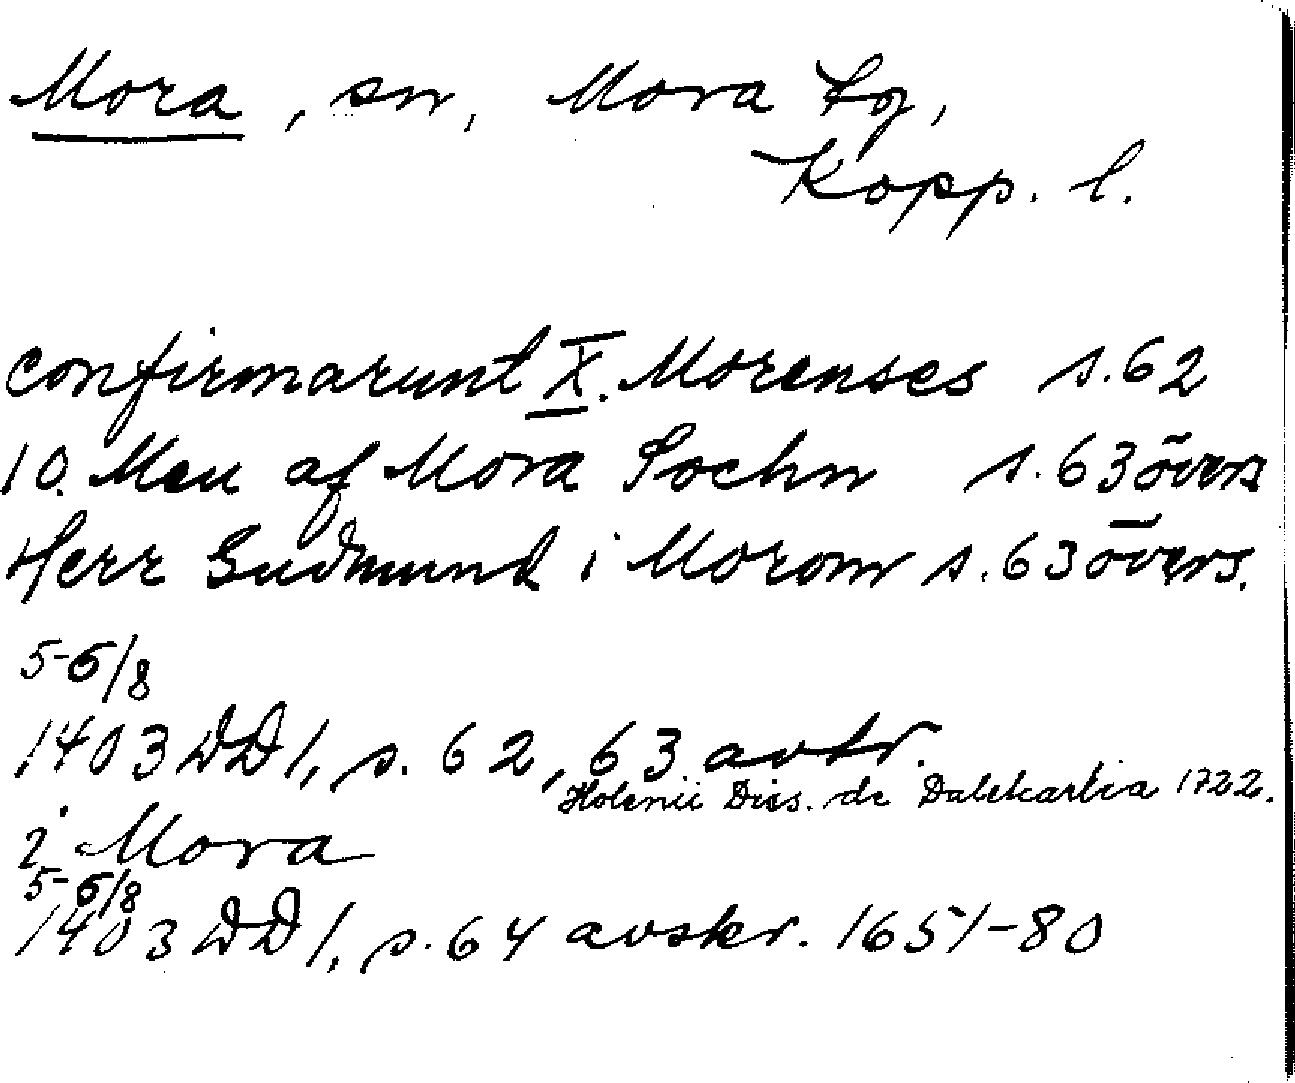 Mora, sn, Mora tg,
Kopp. l.
confirmarunt X. Morenses s.62
10. Men af Mora Sochn s.63 övers
Herr Gudmund i Morom s.63 övers.
5-6/8
1403 DD 1, s. 62, 63 avtr.
Holenii Diss. de Dalekarlia 1722.
i Mora
5-6/8
1403 DD 1, s. 64 avskr. 1651-80